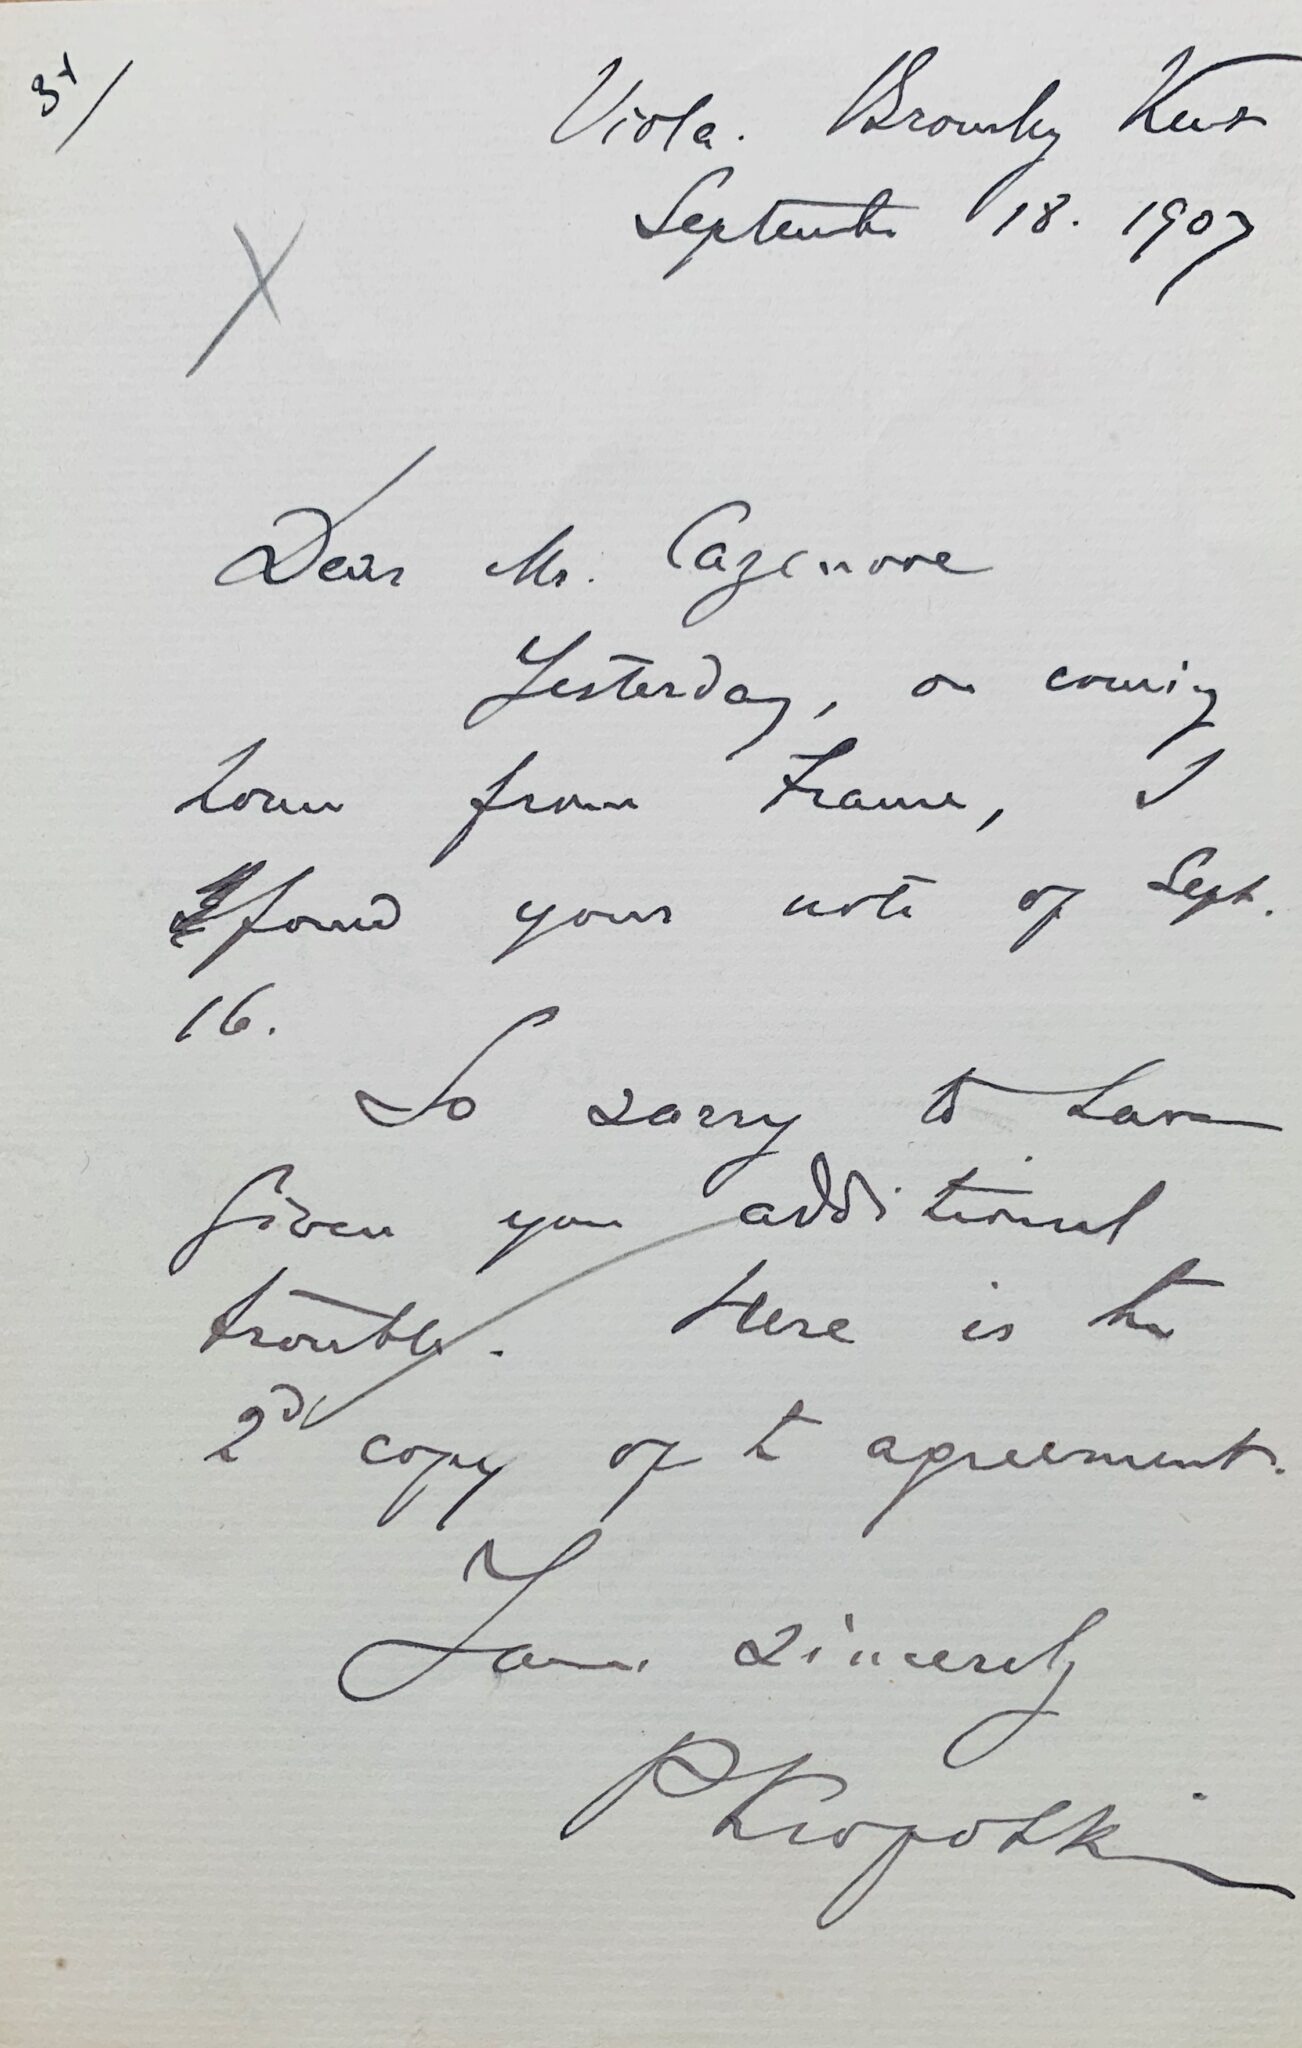 Viola. Bromley Kent
September 18. 1907
Dear Mr. Cazenove
Yesterday, on coming
home from France, I
found your note of Sept.
16.
So sorry to have
given you additional
trouble. Here is the
2d copy of t agreement.
Yours sincerely
P Kropotkin